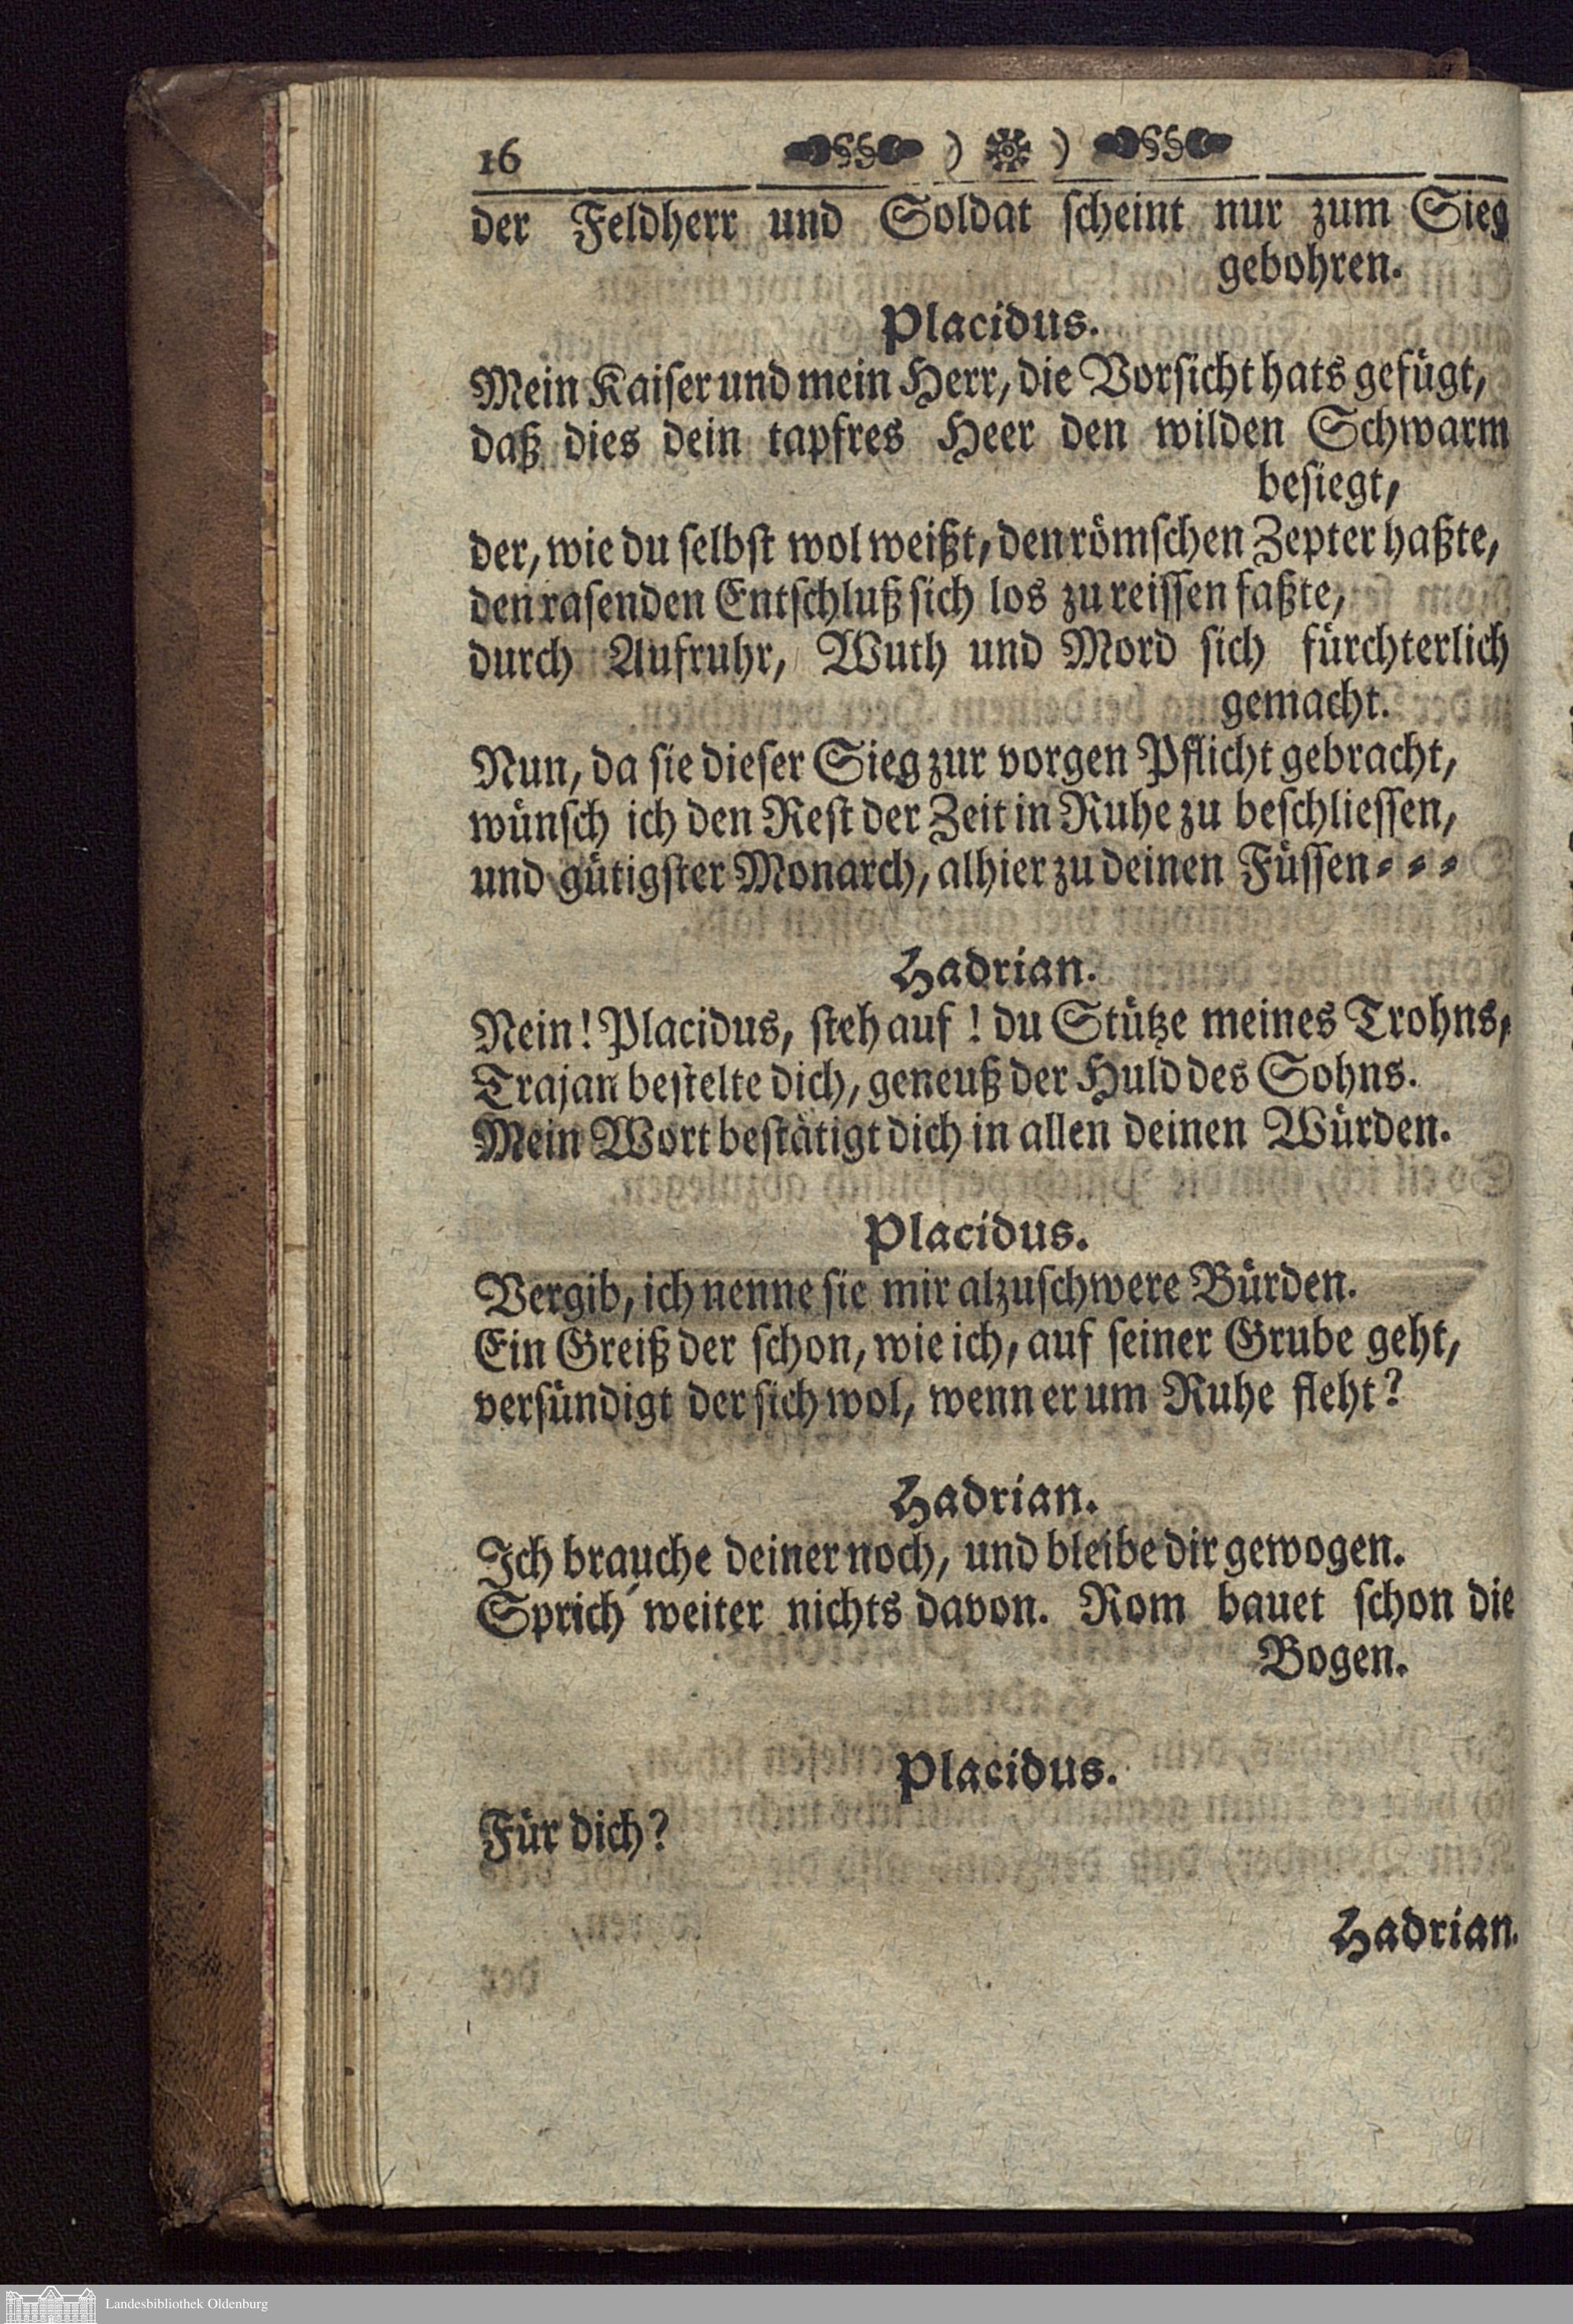 16
der Feldherr und Soldat ſcheint nur zum Sieg
gebohren.
Placidus.
Mein Kaiſer und mein Herr, die Vorſicht hats gefügt,
daß dies dein tapfres Heer den wilden Schwarm
beſiegt,
der, wie du ſelbſt wol weißt, den römſchen Zepter haßte,
den raſenden Entſchluß ſich los zu reiſſen faßte,
durch Aufruhr, Wuth und Mord ſich fürchterlich
gemacht.
Nun, da ſie dieſer Sieg zur vorgen Pflicht gebracht,
wünſch ich den Reſt der Zeit in Ruhe zu beſchlieſſen,
und gütigſter Monarch, alhier zu deinen Füſſen⸗ ⸗ ⸗
Hadrian.
Nein! Placidus, ſteh auf! du Stütze meines Trohns,
Trajan beſtelte dich, geneuß der Huld des Sohns.
Mein Wort beſtätigt dich in allen deinen Würden.
Placidus.
Vergib, ich nenne ſie mir alzuſchwere Bürden.
Ein Greiß der ſchon, wie ich, auf ſeiner Grube geht,
verſündigt der ſich wol, wenn er um Ruhe fleht?
Hadrian.
Ich brauche deiner noch, und bleibe dir gewogen.
Sprich weiter nichts davon. Rom bauet ſchon die
Bogen.
Placidus.
Für dich?
Hadrian.
Landesbibliothek Oldenburg